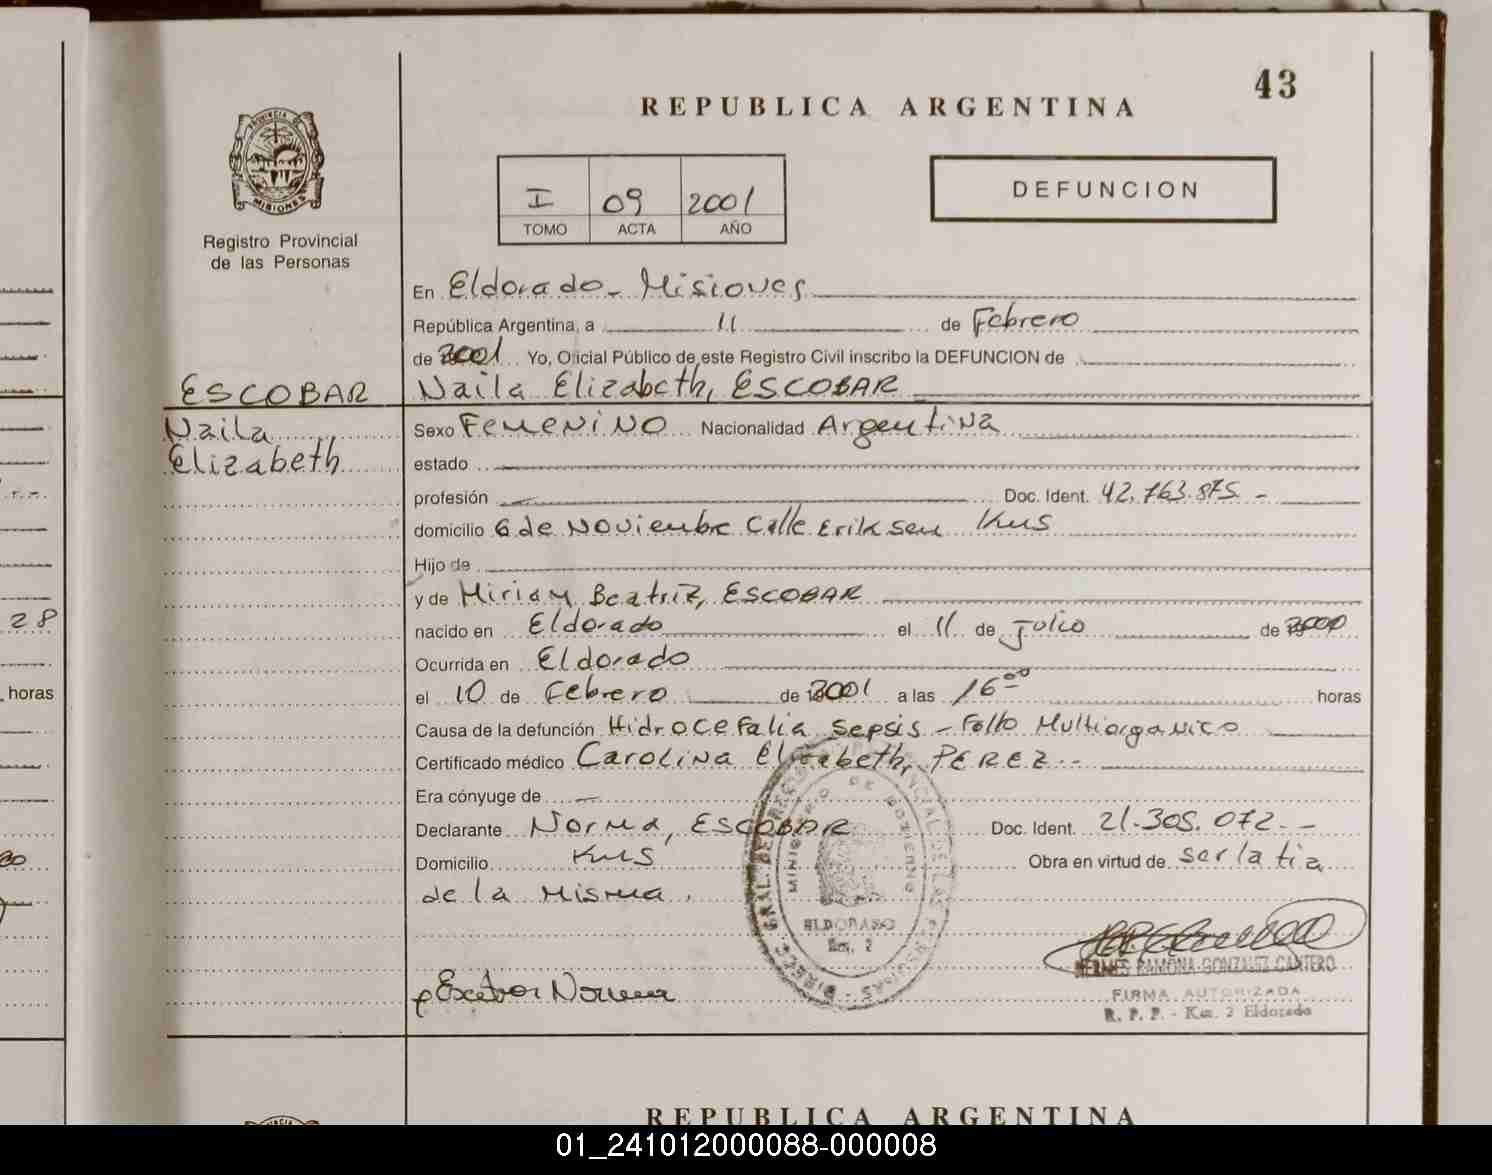 43
REPUBLICA ARGENTINA
PROVINCIA DE
MISIONES
Registro Provincial
de las Personas
I 09 2001
TOMO ACTA AÑO
DEFUNCION
En Eldorado - Misiones
República Argentina, a 11 de Febrero
de 2001 Yo, Oficial Público de este Registro Civil inscribo la DEFUNCION de
ESCOBAR Naila Elizabeth, ESCOBAR
Naila Sexo Femenino Nacionalidad Argentina
Elizabeth estado
profesión Doc. Ident. 42.763.875 -
domicilio 6 de Noviembre Calle Eriksen
Hijo de
y de Miriam Beatriz, ESCOBAR
28 nacido en Eldorado el 11 de Julio de 2000
Ocurrida en Eldorado
horas el 10 de Febrero de 2001 a las 16 00 horas
Causa de la defunción Hidrocefalia Sepsis - Fallo Multiorganico
Certificado médico Carolina Elizabeth, PEREZ --
Era cónyuge de
Declarante Norma, ESCOBAR Doc. Ident. 21.305.072. -
Domicilio Obra en virtud de ser la tia
de la Misma.
MINISTERIO DE GOBIERNO
ELDORADO
Km. 2
Norma
HERMES RAMONA GONZALEZ CANTERO
FIRMA AUTORIZADA
R. P. P. - Km. 2 Eldorado
REPUBLICA ARGENTINA
01_241012000088-000008